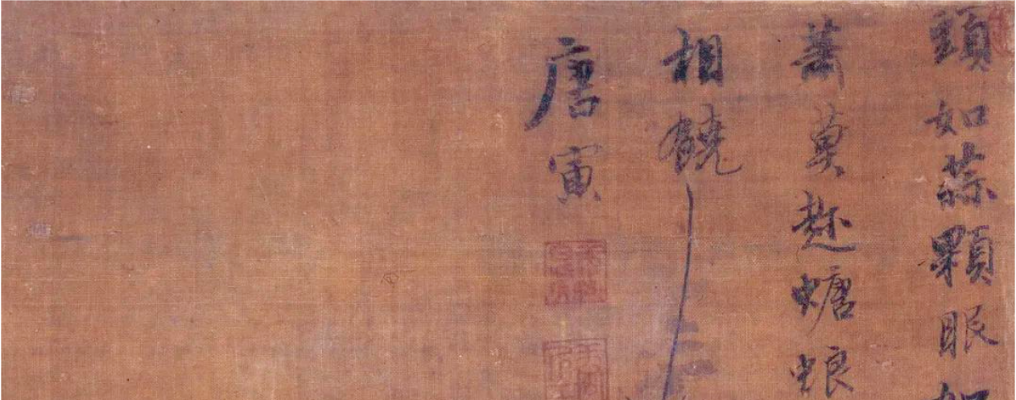 頭如蒜顆眼如
蕭莫趂螗蜋
相饒
唐寅